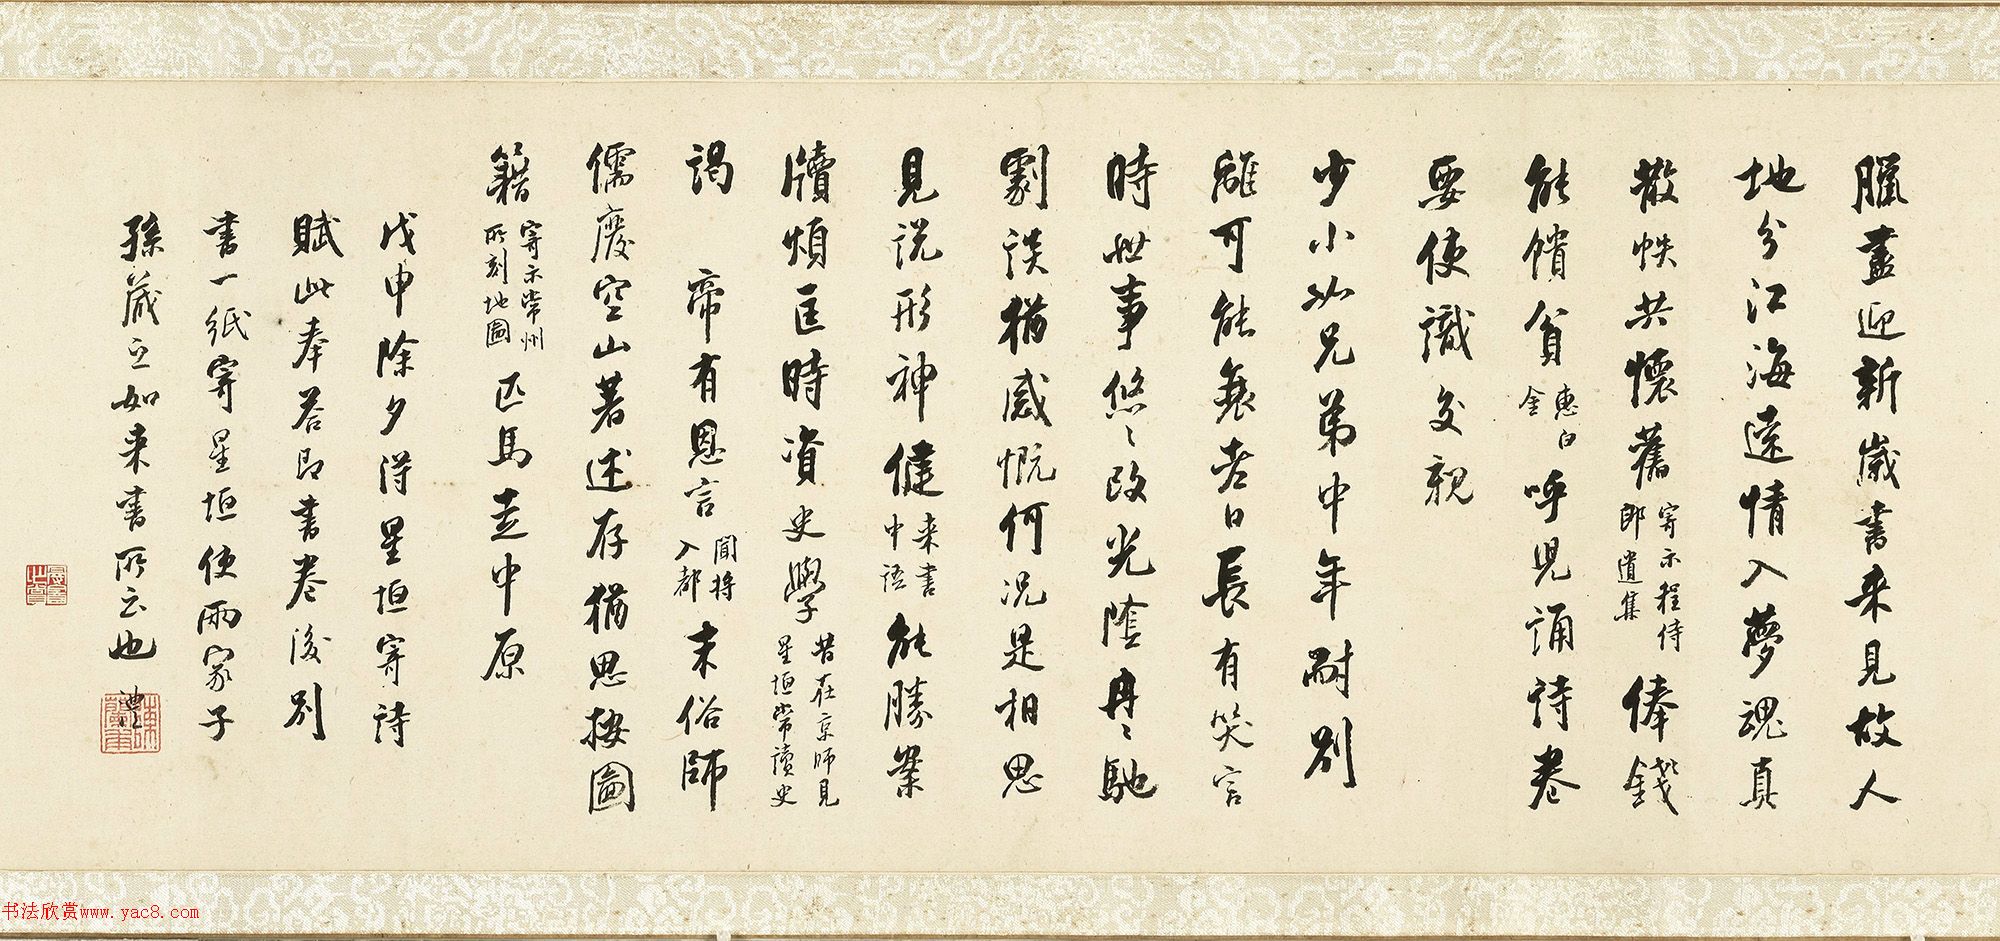 臘盡迎新歲書來見故人
地分江海遠情入夢魂真
散帙共懷舊寄示程侍郎遺集俸錢
能饋貧惠白金呼兒誦詩卷
要使識交親
少小如兄弟中年耐別
離可能衰老日長有笑言
時世事悠悠改光陰冉冉馳
劇談猶感慨何況是相思
見說形神健來書中語能勝案
牘煩匡時資史學昔在京師見星垣常讀史
謁 帝有恩言聞將入都末俗師
儒廢空山著述存猶思按圖
籍寄示常州所刻地圖匹馬走中原
戊申除夕得星垣寄詩
賦此奉答即書卷後別
書一紙寄星垣使兩家子
孫藏之如來書所云也 澧
书法欣赏www.yac8.com